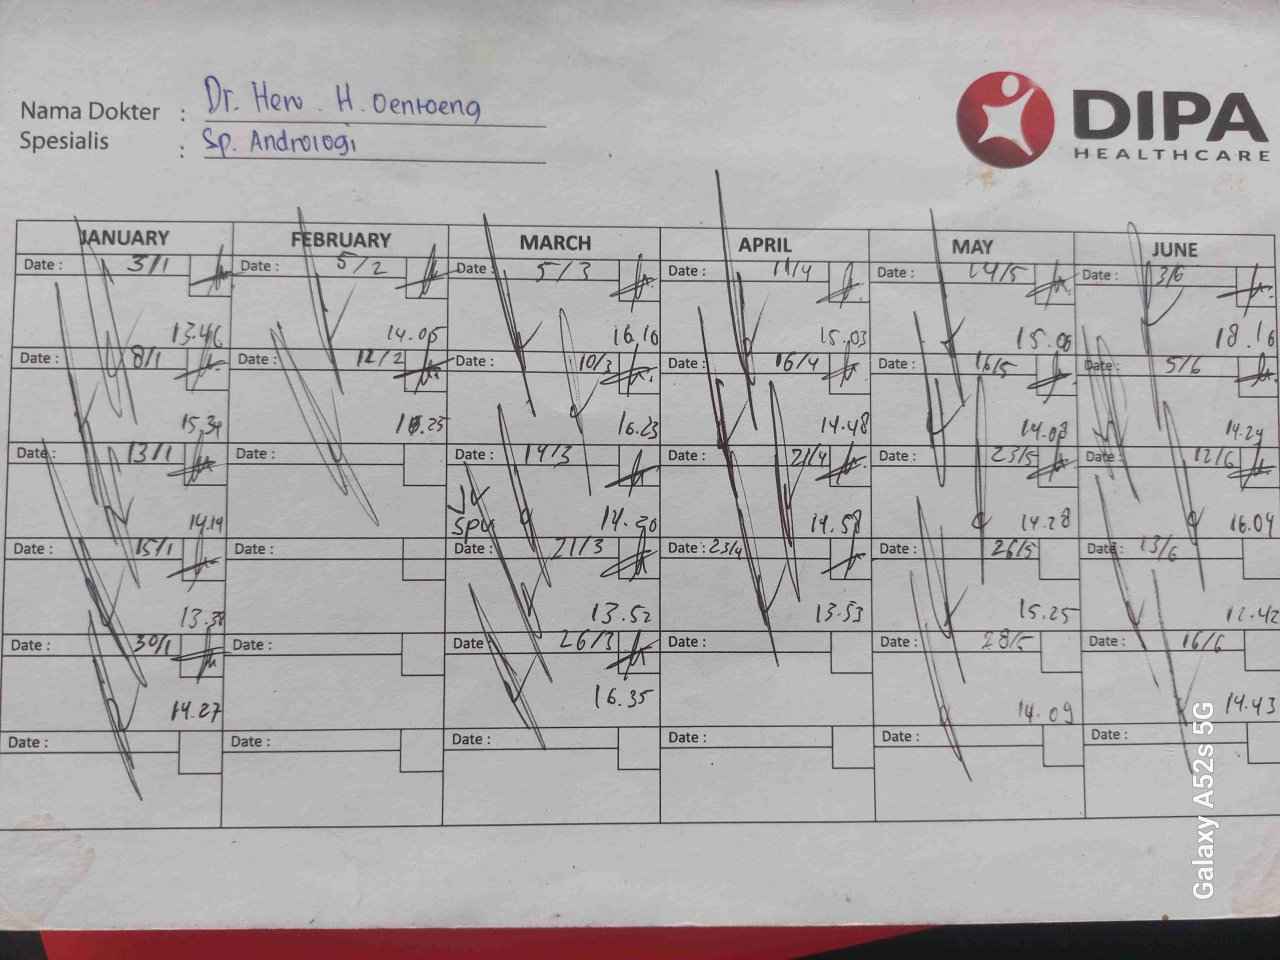 Nama Dokter : Dr. Hero . H. Oentoeng
Spesialis : Sp. Andrologi
DIPA
HEALTHCARE
JANUARY FEBRUARY MARCH APRIL MAY JUNE
Date : 3/1 Date : 5/2 Date : 5/3 Date : 11/4 Date : 14/5 Date : 3/6
13.46 14.05 16.10 15.03 15.06 18.16
Date : 8/1 Date : 12/2 Date : 10/3 Date : 16/4 Date : 16/5 Date : 5/6
15.34 16.23 14.48 14.08 14.24
Date : 13/1 Date : Date : 14/3 Date : 21/4 Date : 23/5 Date : 12/6
14.14 Spv 14.20 14.58 14.28 16.04
Date : 15/1 Date : Date : 21/3 Date : 23/4 Date : 26/5 Date : 13/6
13.38 13.52 13.53 15.25 12.42
Date : 30/1 Date : Date 26/3 Date : Date : 28/5 Date : 16/6
14.27 16.35 14.09 14.43
Date : Date : Date : Date : Date : Date :
Galaxy A52s 5G